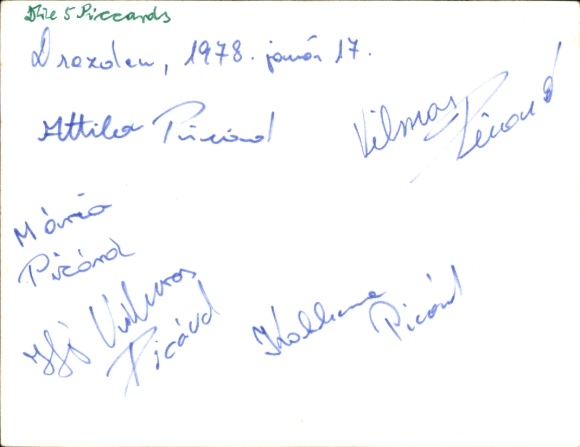 Die 5 Piccards
Drezden, 1978. január 17.
Attila Picard
Vilmos
Picard
Mária
Picárd
Ifj Vilmos
Picárd
Picárd